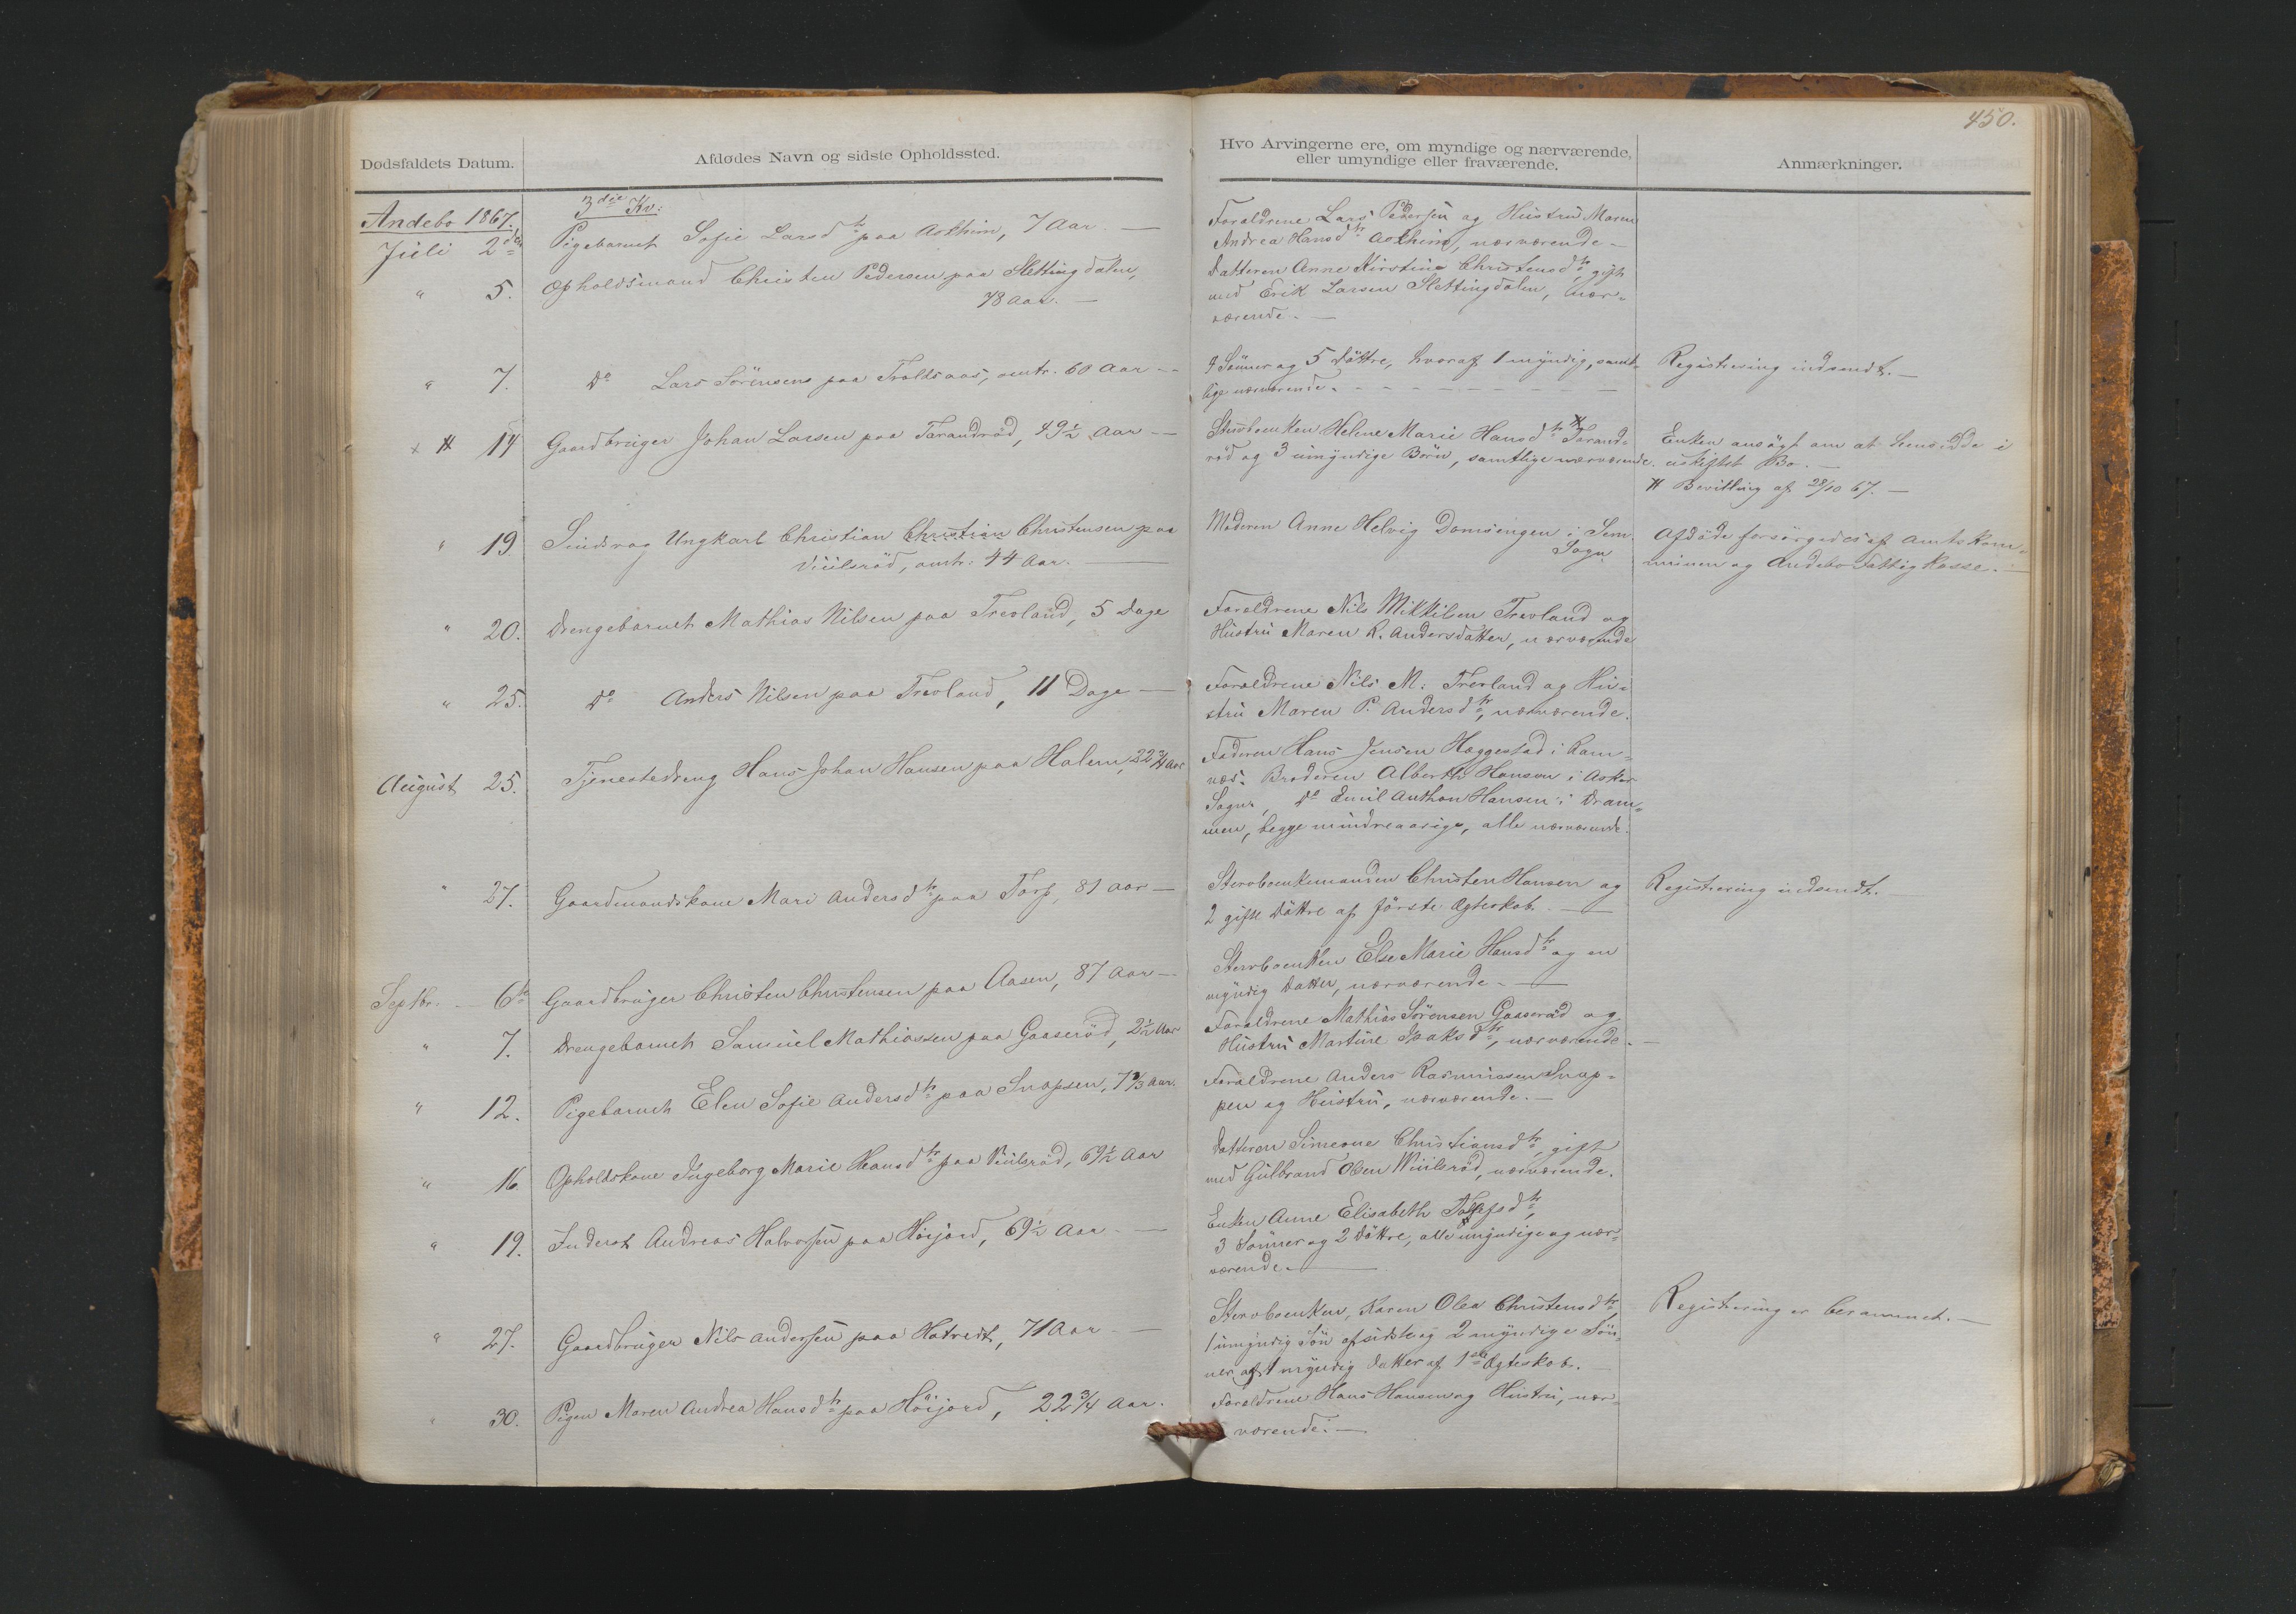 450.
Dødsfaldets Datum.
Afdødes Navn og sidste Opholdssted.
Hvo Arvingerne ere, om myndige og nærværende,
eller umyndige eller fraværende.
Anmærkninger.
Andebo 1867.
3die Kv:
Juli 2den
Pigebarnet Sofie Larsdtr paa Askhim, 7 Aar. —
Forældrene Lars Pedersen og Hustru Maren
Andrea Hansdtr Askhim, nærværende. —
" 5.
Opholdsmand Christen Pedersen paa Slettingdalen,
78 Aar. —
Datteren Anne Kirstine Christensdtr, gift
med Erik Larsen Slettingdalen, nær-
værende. —
" 7.
Do Lars Sörensens paa Troldsaas, omtr. 60 Aar —
4 Sönner og 5 Döttre, hvoraf 1 myndig, samt-
lige nærværende. —
Registrering indsendt. —
x # 14
Gaardbruger Johan Larsen paa Tarandröd, 49½ Aar —
Stervboenken Helene Marie Hansdtr # Tarand-
röd og 3 umyndige Börn, samtlige nærværende.
Enken ansögt om at hensidde i
uskiftet Bo. —
# Bevilling af 28/10 67. —
" 19
Sindsvag Ungkarl Christian Christian Christensen paa
Viulsröd, omtr. 44 Aar. —
Moderen Anne Helvig Domsengen i Sem
Sogn
Afdöde forsörgedes af Amtskom-
munen og Andebo Fattigkasse. —
" 20.
Drengebarnet Mathias Nilsen paa Trevland, 5 Dage
Forældrene Nils Mikkelsen Trevland og
Hustru Maren P. Andersdatter, nærværende
" 25.
Do Anders Nilsen paa Trevland, 11 Dage —
Forældrene Nils M. Trevland og Hu-
stru Maren P. Andersdtr, nærværende.
August 25.
Tjenestedreng Hans Johan Hansen paa Holem, 22¾ Aar
Faderen Hans Jensen Hæggestad i Ram-
næs. Broderen Alberth Hansen i Asker
Sogn, Do Emil Anthon Hansen i Dram-
men, begge mindreaarige, alle nærværende.
" 27.
Gaardmandskone Mari Andersdtr paa Torp, 81 Aar —
Stervboenkemanden Christen Hansen og
2 gifte Döttre af förste Ægteskab. —
Registrering indsendt. —
Septbr. 6te
Gaardbruger Christen Christensen paa Aasen, 87 Aar —
Stervboenken Else Marie Hansdtr og en
myndig Datter, nærværende. —
" 7.
Drengebarnet Samuel Mathiassen paa Gaaseröd, 2½ Aar
Forældrene Mathias Sörensen Gaaseröd og
Hustru Martine Isaksdtr, nærværende. —
" 12.
Pigebarnet Elen Sofie Andersdtr paa Snapsen, 7⅔ Aar.
Forældrene Anders Rasmussen Snap-
pen og Hustru, nærværende. —
" 16
Opholdskone Ingeborg Marie Hansdtr paa Viulsröd, 69½ Aar
Datteren Simeone Christiansdtr, gift
med Gulbrand Olsen Wiulsröd, nærværende.
" 19.
Inderst Andreas Halvorsen paa Höijord, 69½ Aar —
Enken Anne Elisabeth dtr,
3 Sönner og 2 Döttre, alle myndige og nær-
værende. —
" 27.
Gaardbruger Nils Andersen paa Hotvedt, 71 Aar —
Stervboenken, Karen Olea Christensdtr,
1 umyndig Sön af sidste og 2 myndige Sön-
ner og 1 myndig Datter af 1ste Ægteskab. —
Registrering er berammet. —
" 30.
Pigen Maren Andrea Hansdtr paa Höijord, 22¾ Aar.
Forældrene Hans Hansen og Hustru, nær-
værende. —